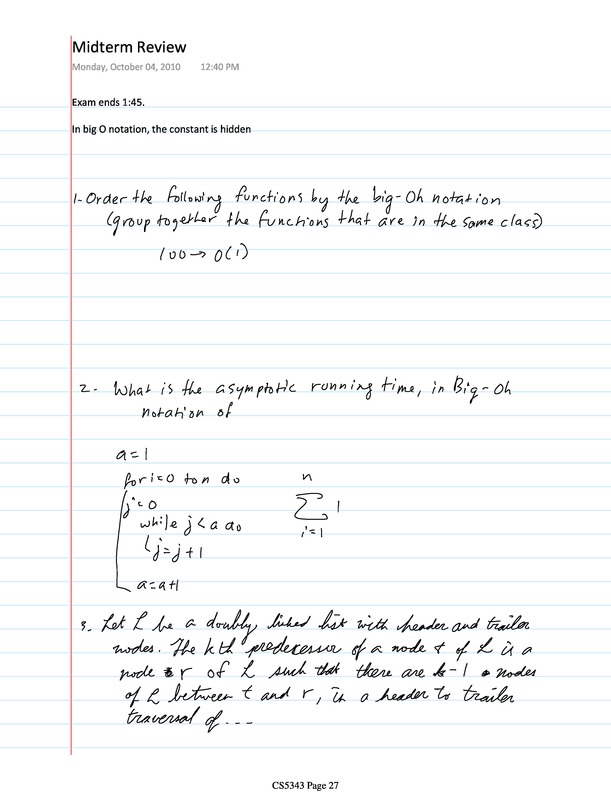 Midterm Review
Monday, October 04, 2010 12:40 PM
Exam ends 1:45.
In big O notation, the constant is hidden
1- Order the following functions by the big-Oh notation
(group together the functions that are in the same class)
100 → O(1)
2- What is the asymptotic running time, in Big-Oh
notation of
a=1
for i=0 to n do
j=0
while j<a do
j=j+1
a=a+1
n
∑ 1
i=1
3. Let L be a doubly linked list with header and trailer
nodes. The kth predecessor of a node t of L is a
node r of L such that there are k-1 nodes
of L between t and r, in a header to trailer
traversal of ...
CS5343 Page 27